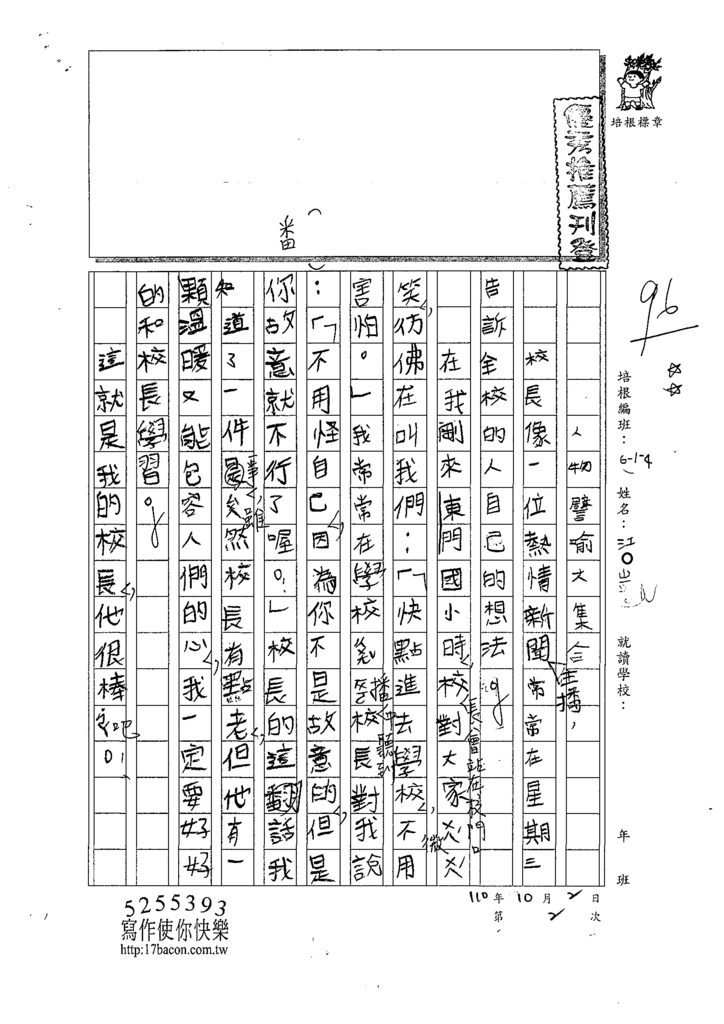 培根標章
優秀推薦刊登
番
96
培根編班：6-1-4 姓名：江○ 就讀學校： 年 班
110年10月2日
第2次
人物譬喻大集合
校長像一位熱情新聞主播，常常在星期三
告訴全校的人自己的想法。
在我剛來東門國小時，校長會站在校門口對大家微
笑，彷佛在叫我們：「快點進去學校，不用
害怕。」我常常在學校聽到校長對我說
：「不用怪自己，因為你不是故意的，但是
你故意就不行了喔！」校長的這翻話我
知道了一件事，雖然校長有點老，但他有一
顆溫暖又能包容人們的心，我一定要好好
的和校長學習。
這就是我的校長，他很棒吧！
5255393
寫作使你快樂
http:17bacon.com.tw